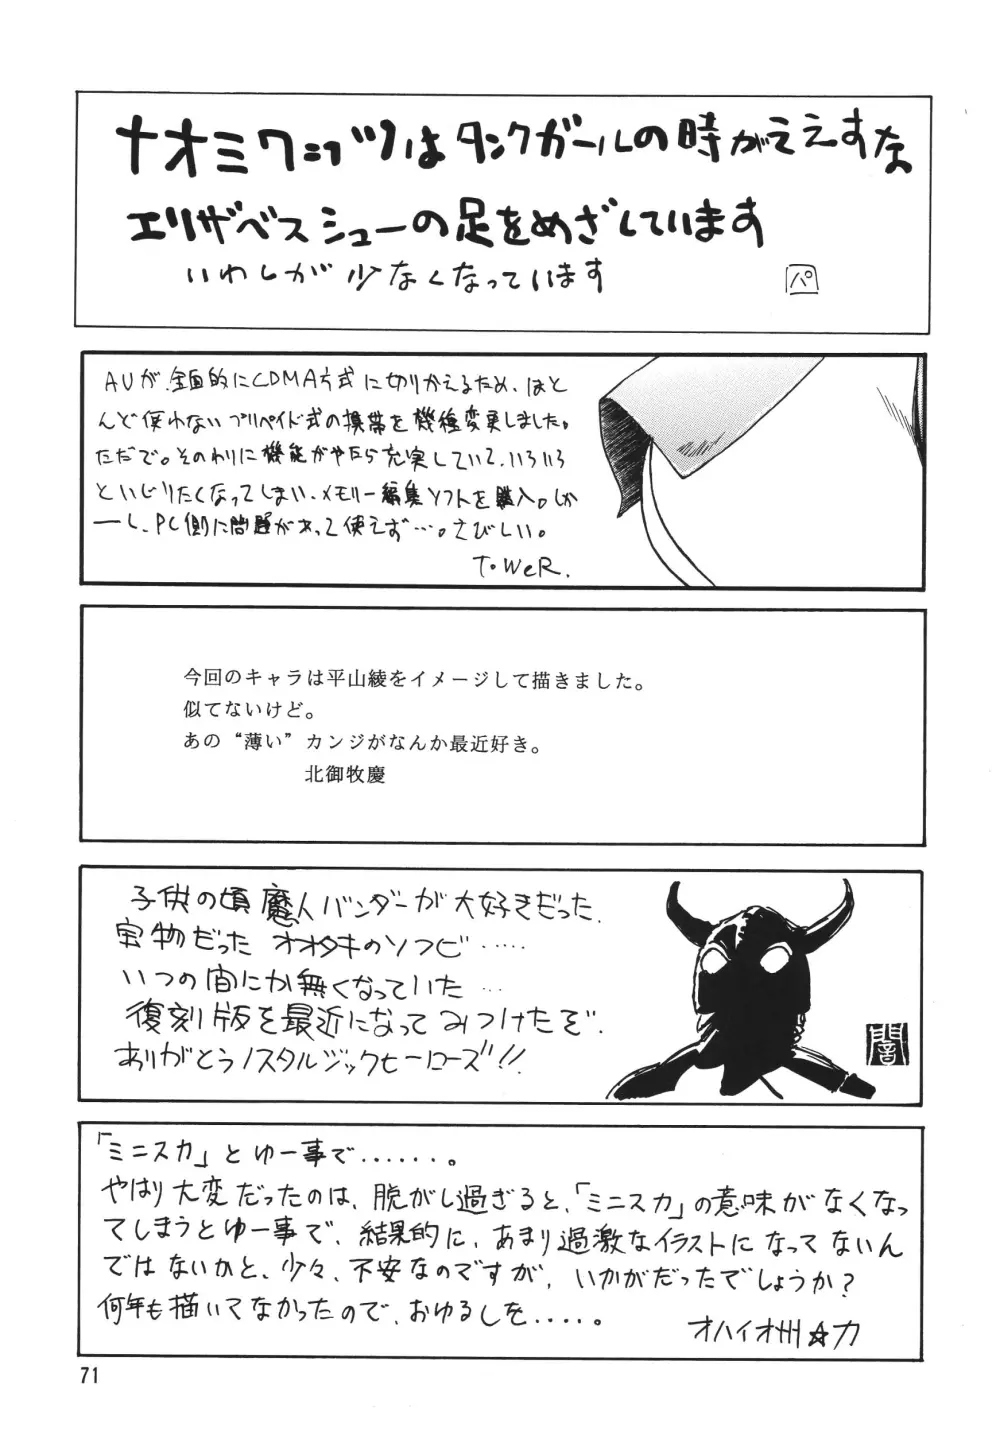 ナオミワッツはタンクガールの時がええすな
エリザベスシューの足をめざしています
いわしが少なくなっています
パ
AUが、全面的にCDMA方式に切りかえるため、ほと
んど使わないプリペイド式の携帯を機種変更しました。
ただで。そのわりに機能がやたら充実していて、いろいろ
といじりたくなってしまい、メモリー編集ソフトを購入。しか
ーし、PC側に問題があって使えず…。さびしい。
T・WeR.
今回のキャラは平山綾をイメージして描きました。
似てないけど。
あの“薄い”カンジがなんか最近好き。
北御牧慶
子供の頃魔人バンダーが大好きだった.
宝物だった オオタキのソフビ.....
いつの間にか無くなっていた...
復刻版を最近になってみつけたぞ.
ありがとうノスタルジックヒーローズ!!
闇
「ミニスカ」とゆー事で......。
やはり大変だったのは、脱がし過ぎると、「ミニスカ」の意味がなくなっ
てしまうとゆー事で、結果的に、あまり過激なイラストになってないん
ではないかと、少々、不安なのですが、いかがだったでしょうか?
何年も描いてなかったので、おゆるしを....。
オハイオ州☆力
71